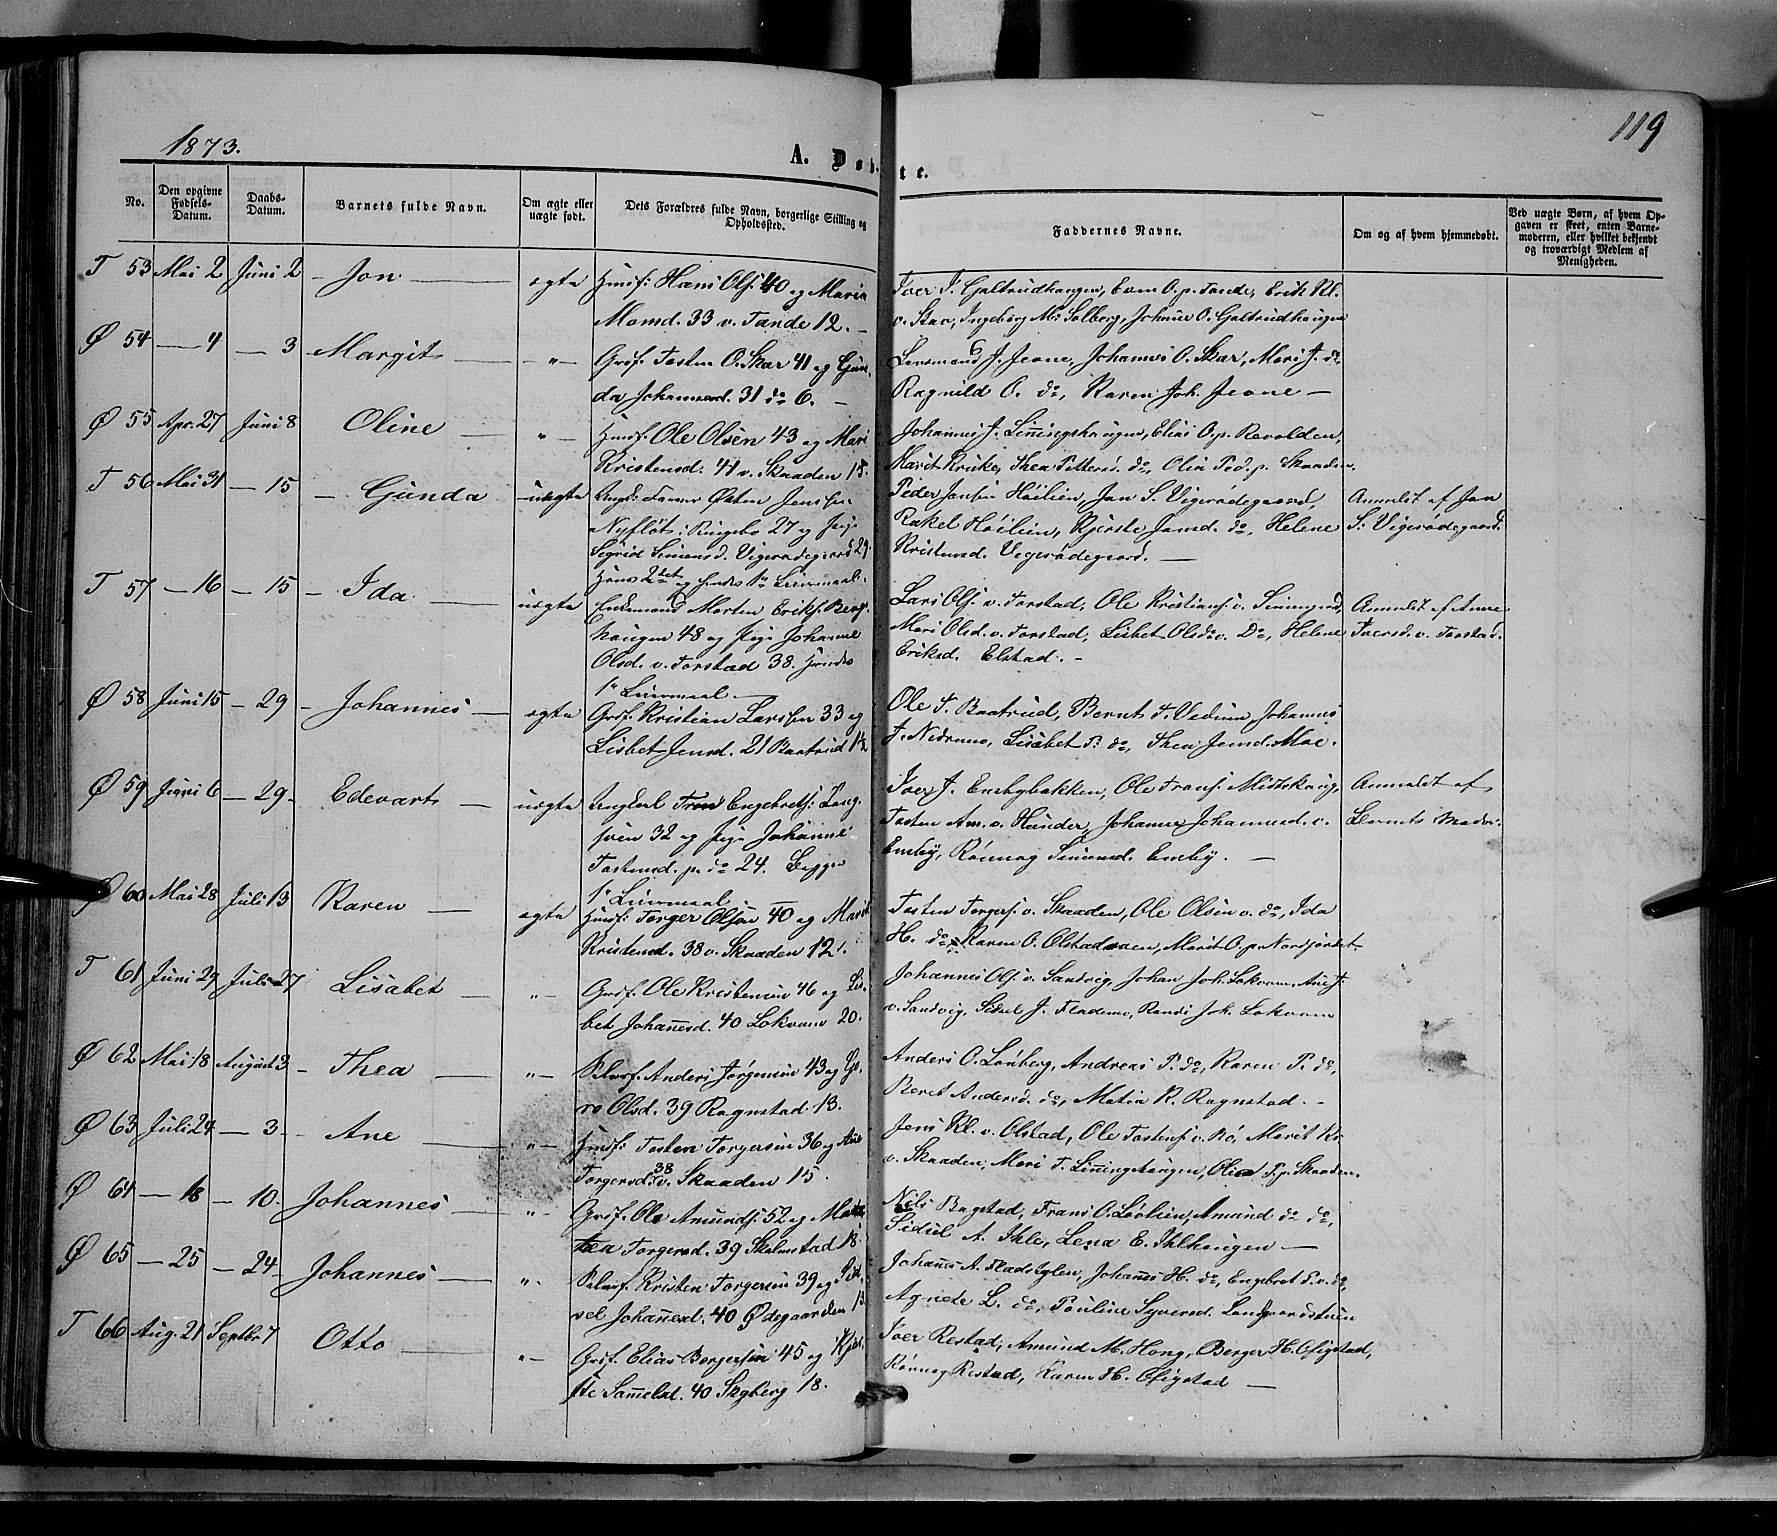 1873.
119
A. Døbte.
No.
Den opgivne Fødsels-Datum.
Daabs-Datum.
Barnets fulde Navn.
Om ægte eller uægte født.
Dets Forældres fulde Navn, borgerlige Stilling og Opholdssted.
Faddernes Navne.
Om og af hvem hjemmedøbt.
Ved uægte Børn, af hvem Opgaven er skeet, enten Barnemoderen, eller hvilket bekjendt og troværdigt Medlem af Menigheden.
T 53 Mai 2 Juni 2 - Jon ægte Husf: Hans Ols. 40 og Maria
Momd. 33 v. Tande 12.
Iver J. Galtrudhaugen, Even O. p. Tande, Erik Kl.
v. Star, Ingeborg M. Solberg, Johnie O. Galtrudhaugen
Ø 54 — 4 — 3 Margit " Grdf. Tosten O. Skar 41 og Gun-
da Johannesd. 31 do 6.
Lensmand J. Jevne, Johannes O. Skar, Mari J. do
Ragnild O. do, Karen Joh. Jevne
Ø 55 Apr. 27 Juni 8 Oline " Husf: Ole Olsen 43 og Mari
Kristensd. 41 v. Skaaden 15.
Johannes J. Linningshaugen, Elias O. p. Revolden,
Marit Kruke, Thea Pettersd. do, Olia Ped. p. Skaaden
T 56 Mai 31 — 15 - Gunda uægte Ungk: Farver Østen Jenssen
Nyfløt i Ringebo 27 og Pige
Sigrid Simensd. Vigerødegaard 29.
Hans 2det og hendes 1ste Leiermaal.
Peder Jensen Høilien, Jan S. Vigerødegaard,
Rakel Høilien, Kjerste Jamd. do, Helene
Kristensd. Vigerødegaard.
Anmeldt af Jan
S. Vigerødegaard
T 57 — 16 — 15 - Ida uægte Enkemand Morten Eriks. Berg-
haugen 48 og Pige Johanne
Olsd. v. Torstad 38. Hendes
1ste Leiermaal
Lars Ols. v. Torstad, Ole Kristians. v.
Mari Olsd. v. Torstad, Lisbet Olsd. v. Do, Helene
Eriksd. Elstad.
Anmeldt af Anne
Iversd. v. Torstad.
Ø 58 Juni 15 — 29 - Johannes ægte Grdf. Kristian Larssen 33 og
Lisbet Jensd. 21 Baatrud 12
Ole T. Baatrud, Bernt T. Vedum, Johannes
J. Nedrumo, Lisabet P. do, Thea Jensd. Moe.
Ø 59 Juni 6 — 29 - Edevart uægte Ungkarl Tron Engebrets. Lang-
sven 32 og Pige Johanne
Tostensd. p. do 24. Begges
1ste Leiermaal
Iver J. Ensbybakken, Ole Frans. Midtskaug
Tosten Am. v. Hunder, Johanne Johannesd. v.
Ensby, Rønnog Simensd. Ensby.
Anmeldt af
Barnets Moder.
Ø 60 Mai 28 Juli 13 Karen ægte Husf: Torger Olsen 40 og Marit
Kristensd. 38 v. Skaaden 12.
Tosten Torgers. v. Skaaden, Ole Olsen v. do, Ida
H. do, Karen O. Olstadsveen, Marit O. p. Nordjordet
T 61 Juni 29 Juli 27 Lisabet " Grdf. Ole Kristensen 46 og Lis-
bet Johannesd. 40 Lokvam 20.
Johannes Ols. v. Sandvig, Johan Joh. Lokvam, Ane J.
v. Sandvig, Sidsel J. Flademo, Randi Joh. Lokvam
Ø 62 Mai 18 August 3 - Thea " Selvf. Anders Jørgensen 43 og Gu-
ro Olsd. 39 Ragnstad 13.
Anders O. Lonberg, Andreas P. do, Karen P. do,
Beret Andersd. do, Matia R. Ragnstad.
Ø 63 Juli 24 — 3 - Ane " Husf. Tosten Torgersen 36 og Ane
Torgersd. 38 v. Skaaden 15.
Jens Kl. v. Olstad, Ole Tostens. v. Rø, Marit Kr.
v. Skaaden, Mari T. Linningshaugen, Olia P. p. Skaaden.
Ø 64 — 18 — 10. Johannes " Grdf. Ole Amunds. 52 og Mat-
tea Torgersd. 39 Skalmstad 18.
Nils Bagstad, Frans O. Loølien, Amund do do,
Sidsel A. Ihle, Lena E. Ihlhaugen
Ø 65 — 25 — 24 - Johannes " Selvf. Kristen Torgersen 39 og Sid-
sel Johannesd. 40 Ødegaarden 13
Johannes A. Fladstylen, Johannes H. do, Engebret P. v. do,
Agnete L. do, Pauline Syversd. Landgaardsstuen
T 66 Aug. 21 Septbr 7 Otto " Grdf. Elias Borgersen 45 og Kjer-
ste Samelsd. 40 Segberg 18.
Iver Restad, Amund M. Hong, Berger H. Ofigstad,
Rønnog Restad, Karen H. Ofigstad